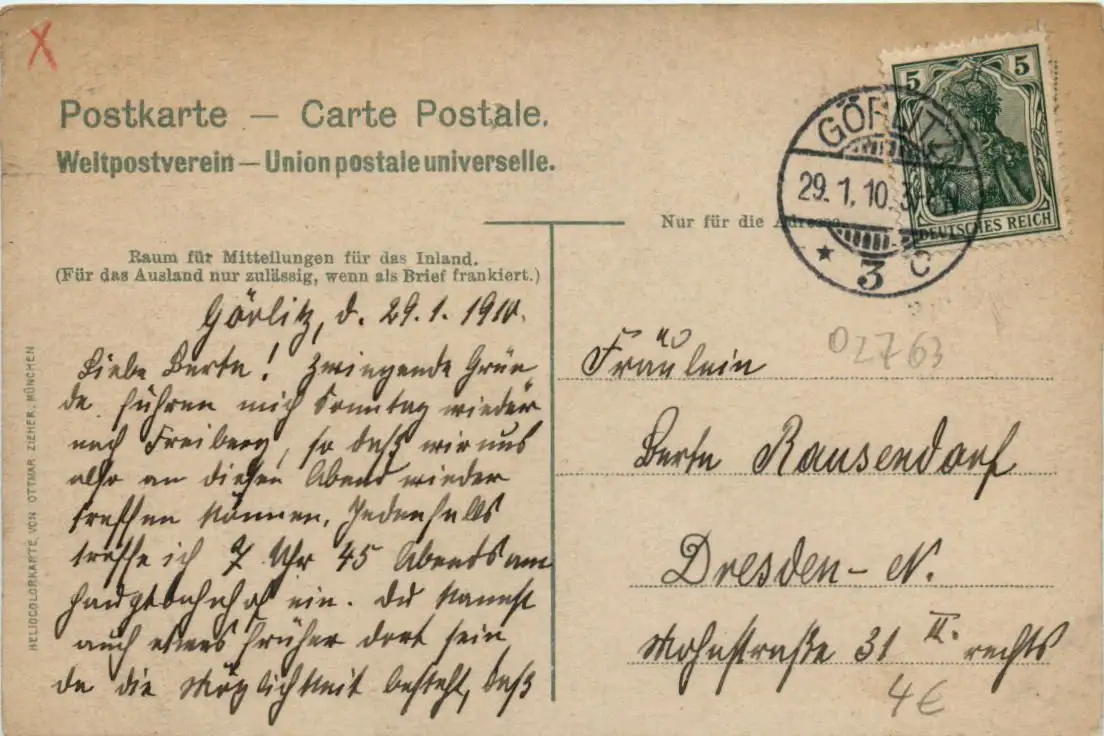 Postkarte — Carte Postale.
Weltpostverein — Union postale universelle.
5 5
DEUTSCHES REICH
GÖRLITZ
29.1.10. 3
* 3 c
Nur für die Adresse
Raum für Mitteilungen für das Inland.
(Für das Ausland nur zulässig, wenn als Brief frankiert.)
Görlitz, d. 29.1.1910.
Liebe Berta! Zwingende Grün
de führen mich Sonntag wieder
nach Freiberg, so daß wir uns
also an diesen Abend wieder
treffen können. Jedenfalls
treffe ich 7 Uhr 45 Abends am
Hauptbahnhof ein. Du kannst
auch etwas früher dort sein,
da die Möglichkeit besteht, daß
02763
Fräulein
Berta Rausendorf
Dresden-N.
Mohnstraße 31 II. rechts
4€
HELIOCOLORKARTE VON OTTMAR ZIEHER, MÜNCHEN